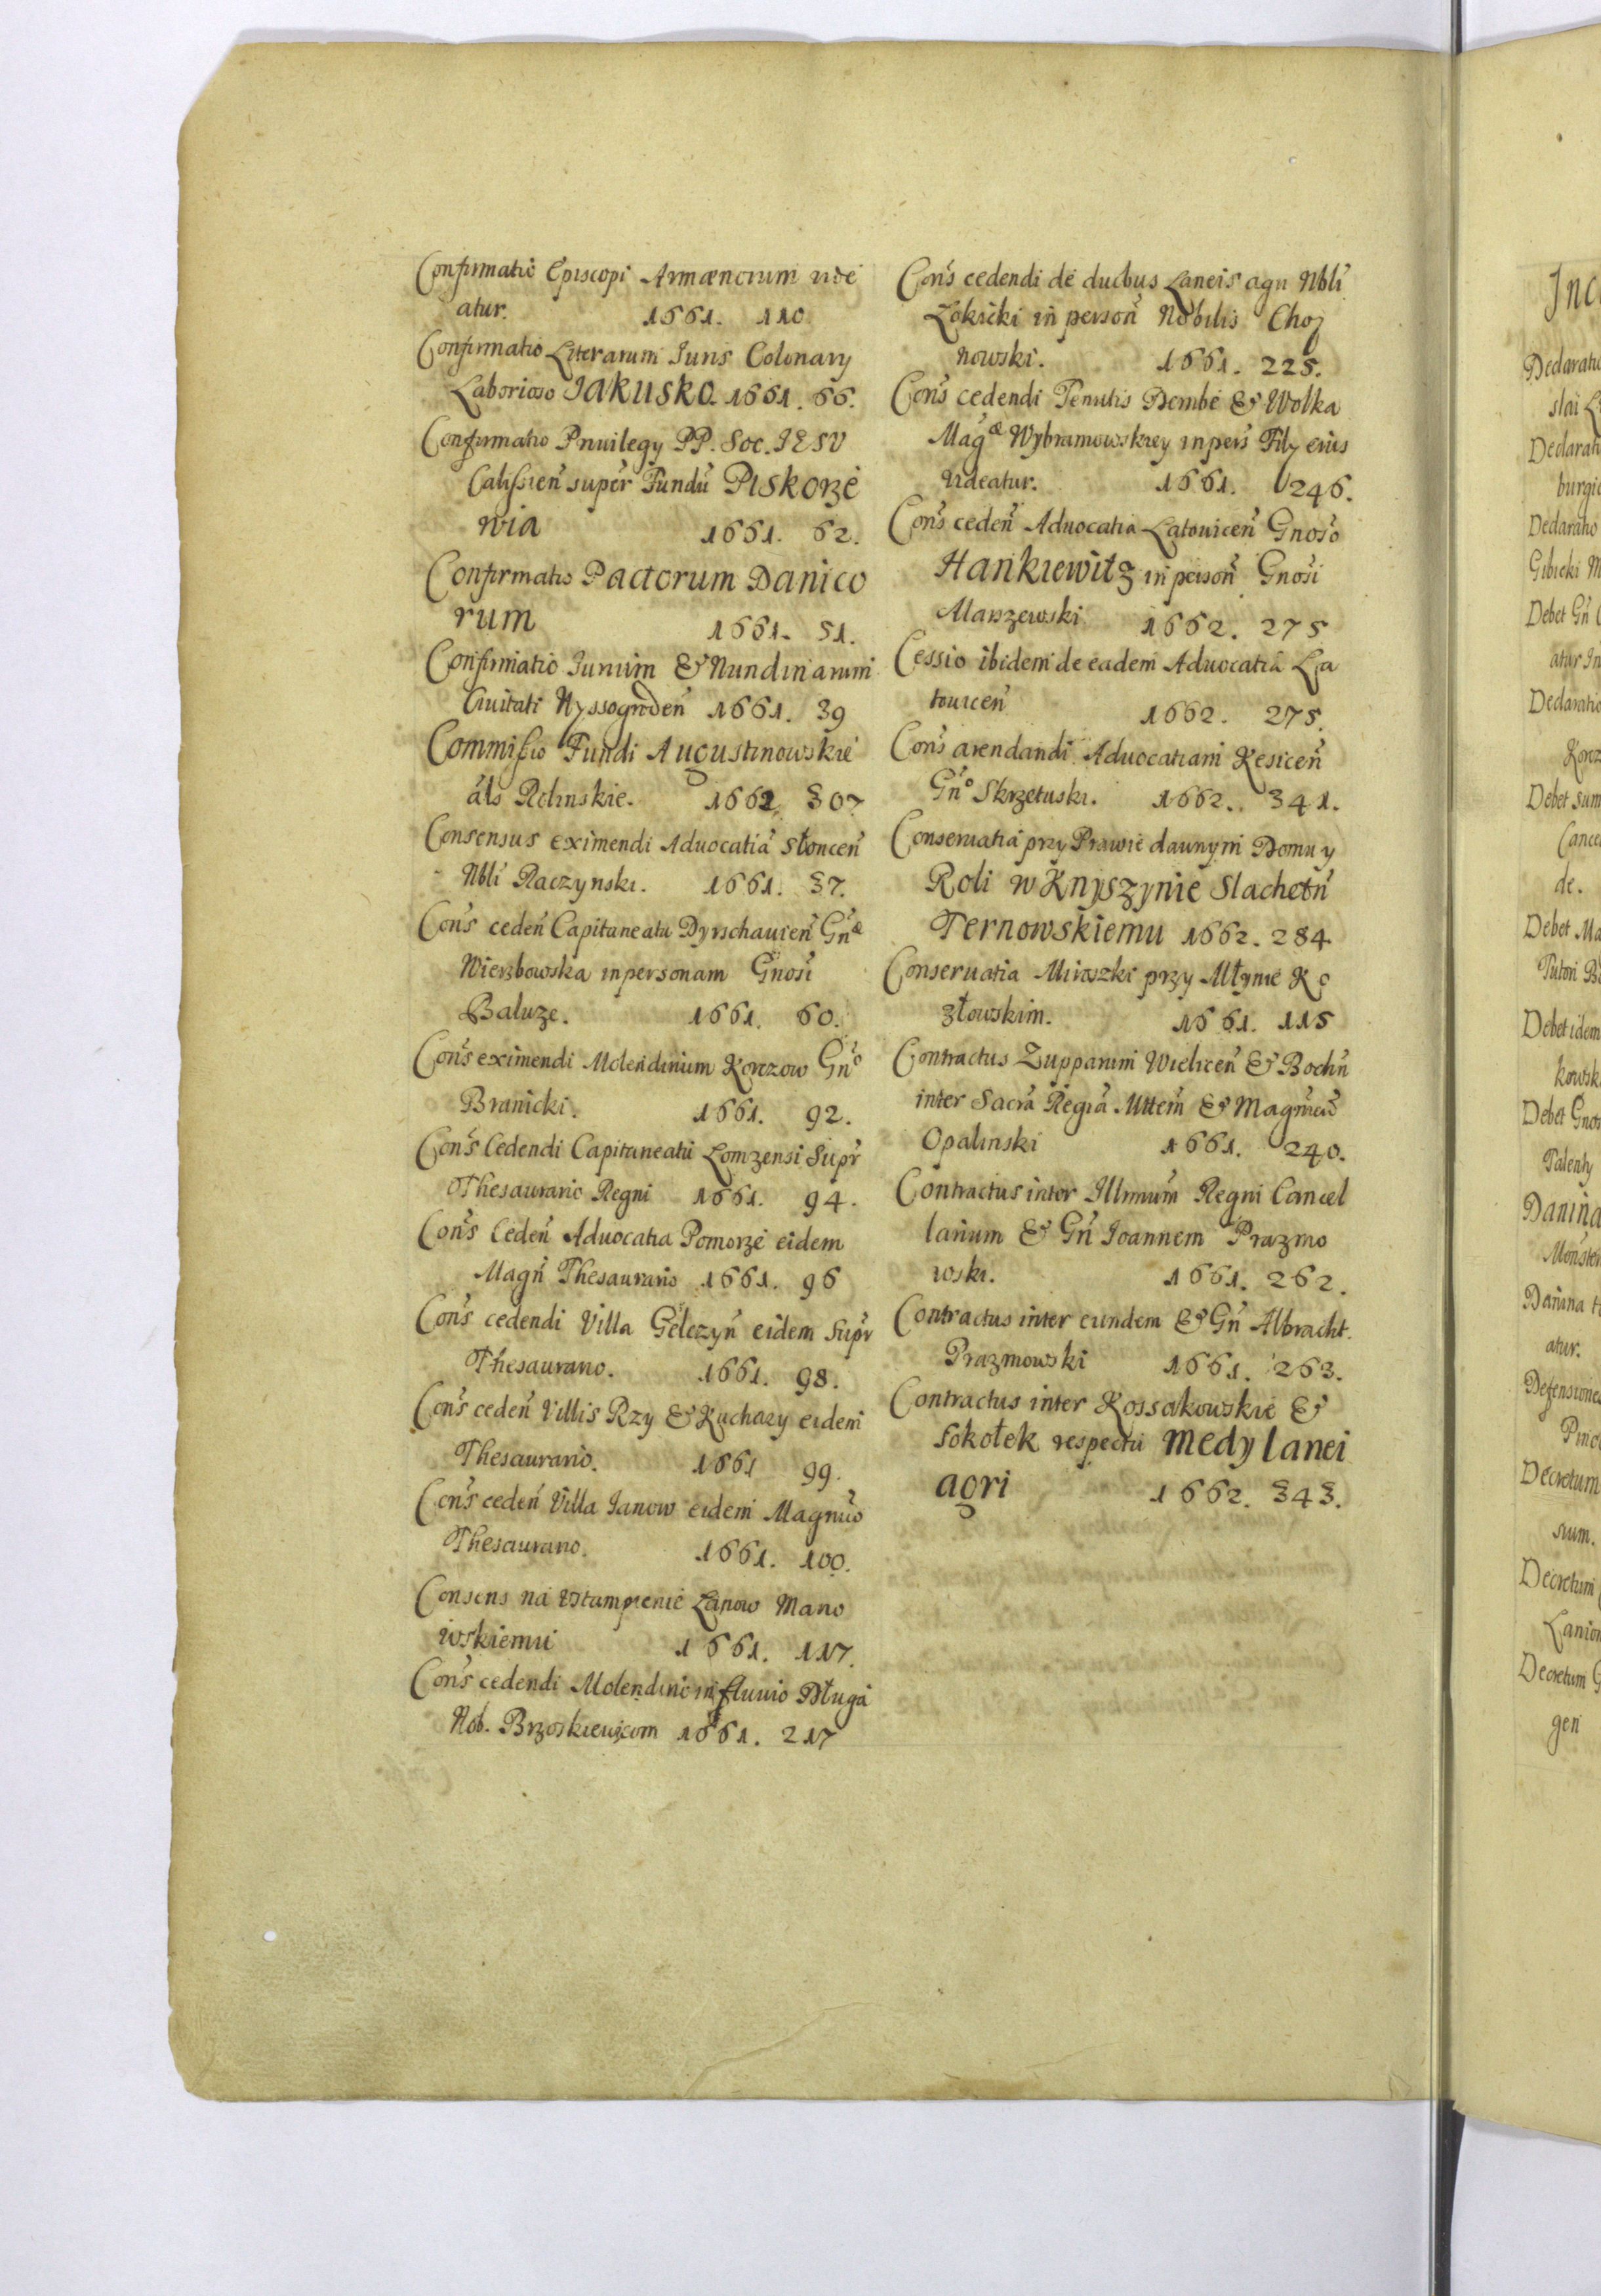 Confirmatio Episcopi Armænorum vide
atur. 1661. 110
Confirmatio Literarum Iuris Colonarij
Laborioso IAKUSKO. 1661. 66.
Confirmatio Priuilegy PP. Soc. IESV
Calissien super Fundū Piskorze
wia 1661. 62.
Confirmatio Pactorum Danico
rum 1661. 51.
Confirmatio Iurium & Nundinarum
Ciuitati Wyssogroden 1661. 39
Commissio Fundi Augustinowskie
als Rolinskie. 1662. 307
Consensus eximendi Aduocatiā Słoncen
Nbli Raczynski. 1661. 37.
Cons ceden Capitaneatu Dyrschauien Gnæ
Wierzbowska in personam Gnosi
Baluze. 1661. 60.
Cons eximendi Molendinum Korzow Gno
Branicki. 1661. 92.
Cons Cedendi Capitaneatu Lomzensi Supr
Thesaurario Regni 1661. 94.
Cons Ceden Aduocatia Pomorze eidem
Magn Thesaurario 1661. 96
Cons cedendi Villa Gelczyn eidem Supr
Thesaurario. 1661. 98.
Cons ceden Villis Rzy & Kuchary eidem
Thesaurario. 1661 99.
Cons ceden Villa Ianow eidem Magnco
Thesaurario. 1661. 100.
Consens na Vstampienie Łanow Mano
wskiemu 1661. 117.
Cons cedendi Molendino in fluuio Długa
Nob. Brzoskiewicom 1661. 217
Cons cedendi de duobus Laneis agri Nbli
Łokicki in person Nobilis Choj
nowski. 1661. 225.
Cons cedendi Tenutis Dembe & Wolka
Magæ Wybramowskiey in pers Filÿ eius
videatur. 1661. 246.
Cons ceden Aduocatia Latouicen Gnoso
Hankiewitz in person Gnosi
Marszewski 1662. 275
Cessio ibidem de eadem Aduocatia La
touicen 1662. 275.
Cons arendandi Aduocatiam Kesicen
Gno Skrzetuski. 1662. 341.
Conseruatia przy Prawie dawnym Domu y
Roli w Knyszynie Slachetn
Ternowskiemu 1662. 284
Conseruatia Miroszki przy Młynie Ko
złowskim. 1661. 115
Contractus Zupparum Wielicen & Bochn
inter Sacrā Regiā Mttem & Magnicū
Opalinski 1661. 240.
Contractus inter Illmum Regni Cancel
larium & Gn Ioannem Prazmo
wski. 1661. 262.
Contractus inter eundem & Gn Albracht.
Prazmowski 1661. 263.
Contractus inter Kossakowskie &
Sokołek respectu Medÿ lanei
agri 1662. 343.
Declaratio
Debet
Declaratio
Debet
de.
Debet
Debet idem
Debet
Danina
Danina
atur.
Decretum
Decretum
Decretum